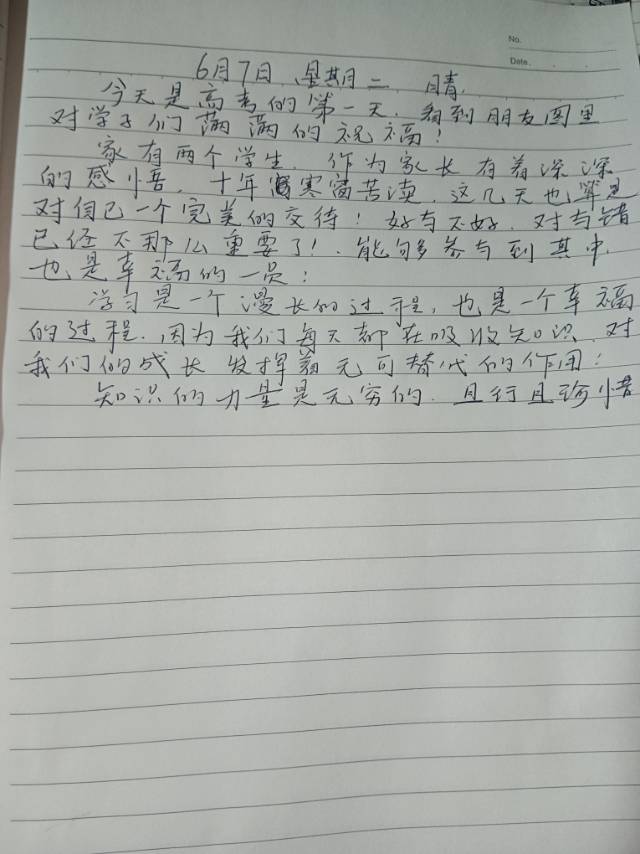 No.
Date.
6月7日 星期二 晴.
今天是高考的第一天. 看到朋友圈里
对学子们满满的祝福!
家有两个学生. 作为家长有着深深
的感悟. 十年寒窗苦读. 这几天也算是
对自己一个完美的交待! 好与不好. 对与错
已经不那么重要了!. 能够参与到其中.
也是幸福的一员!
学习是一个漫长的过程, 也是一个幸福
的过程. 因为我们每天都在吸收知识. 对
我们的成长发挥着无可替代的作用!
知识的力量是无穷的. 且行且珍惜